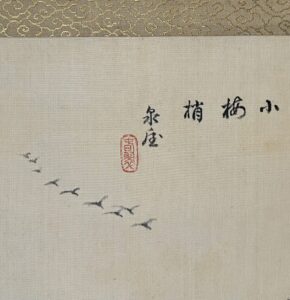 小梅梢
泉屋